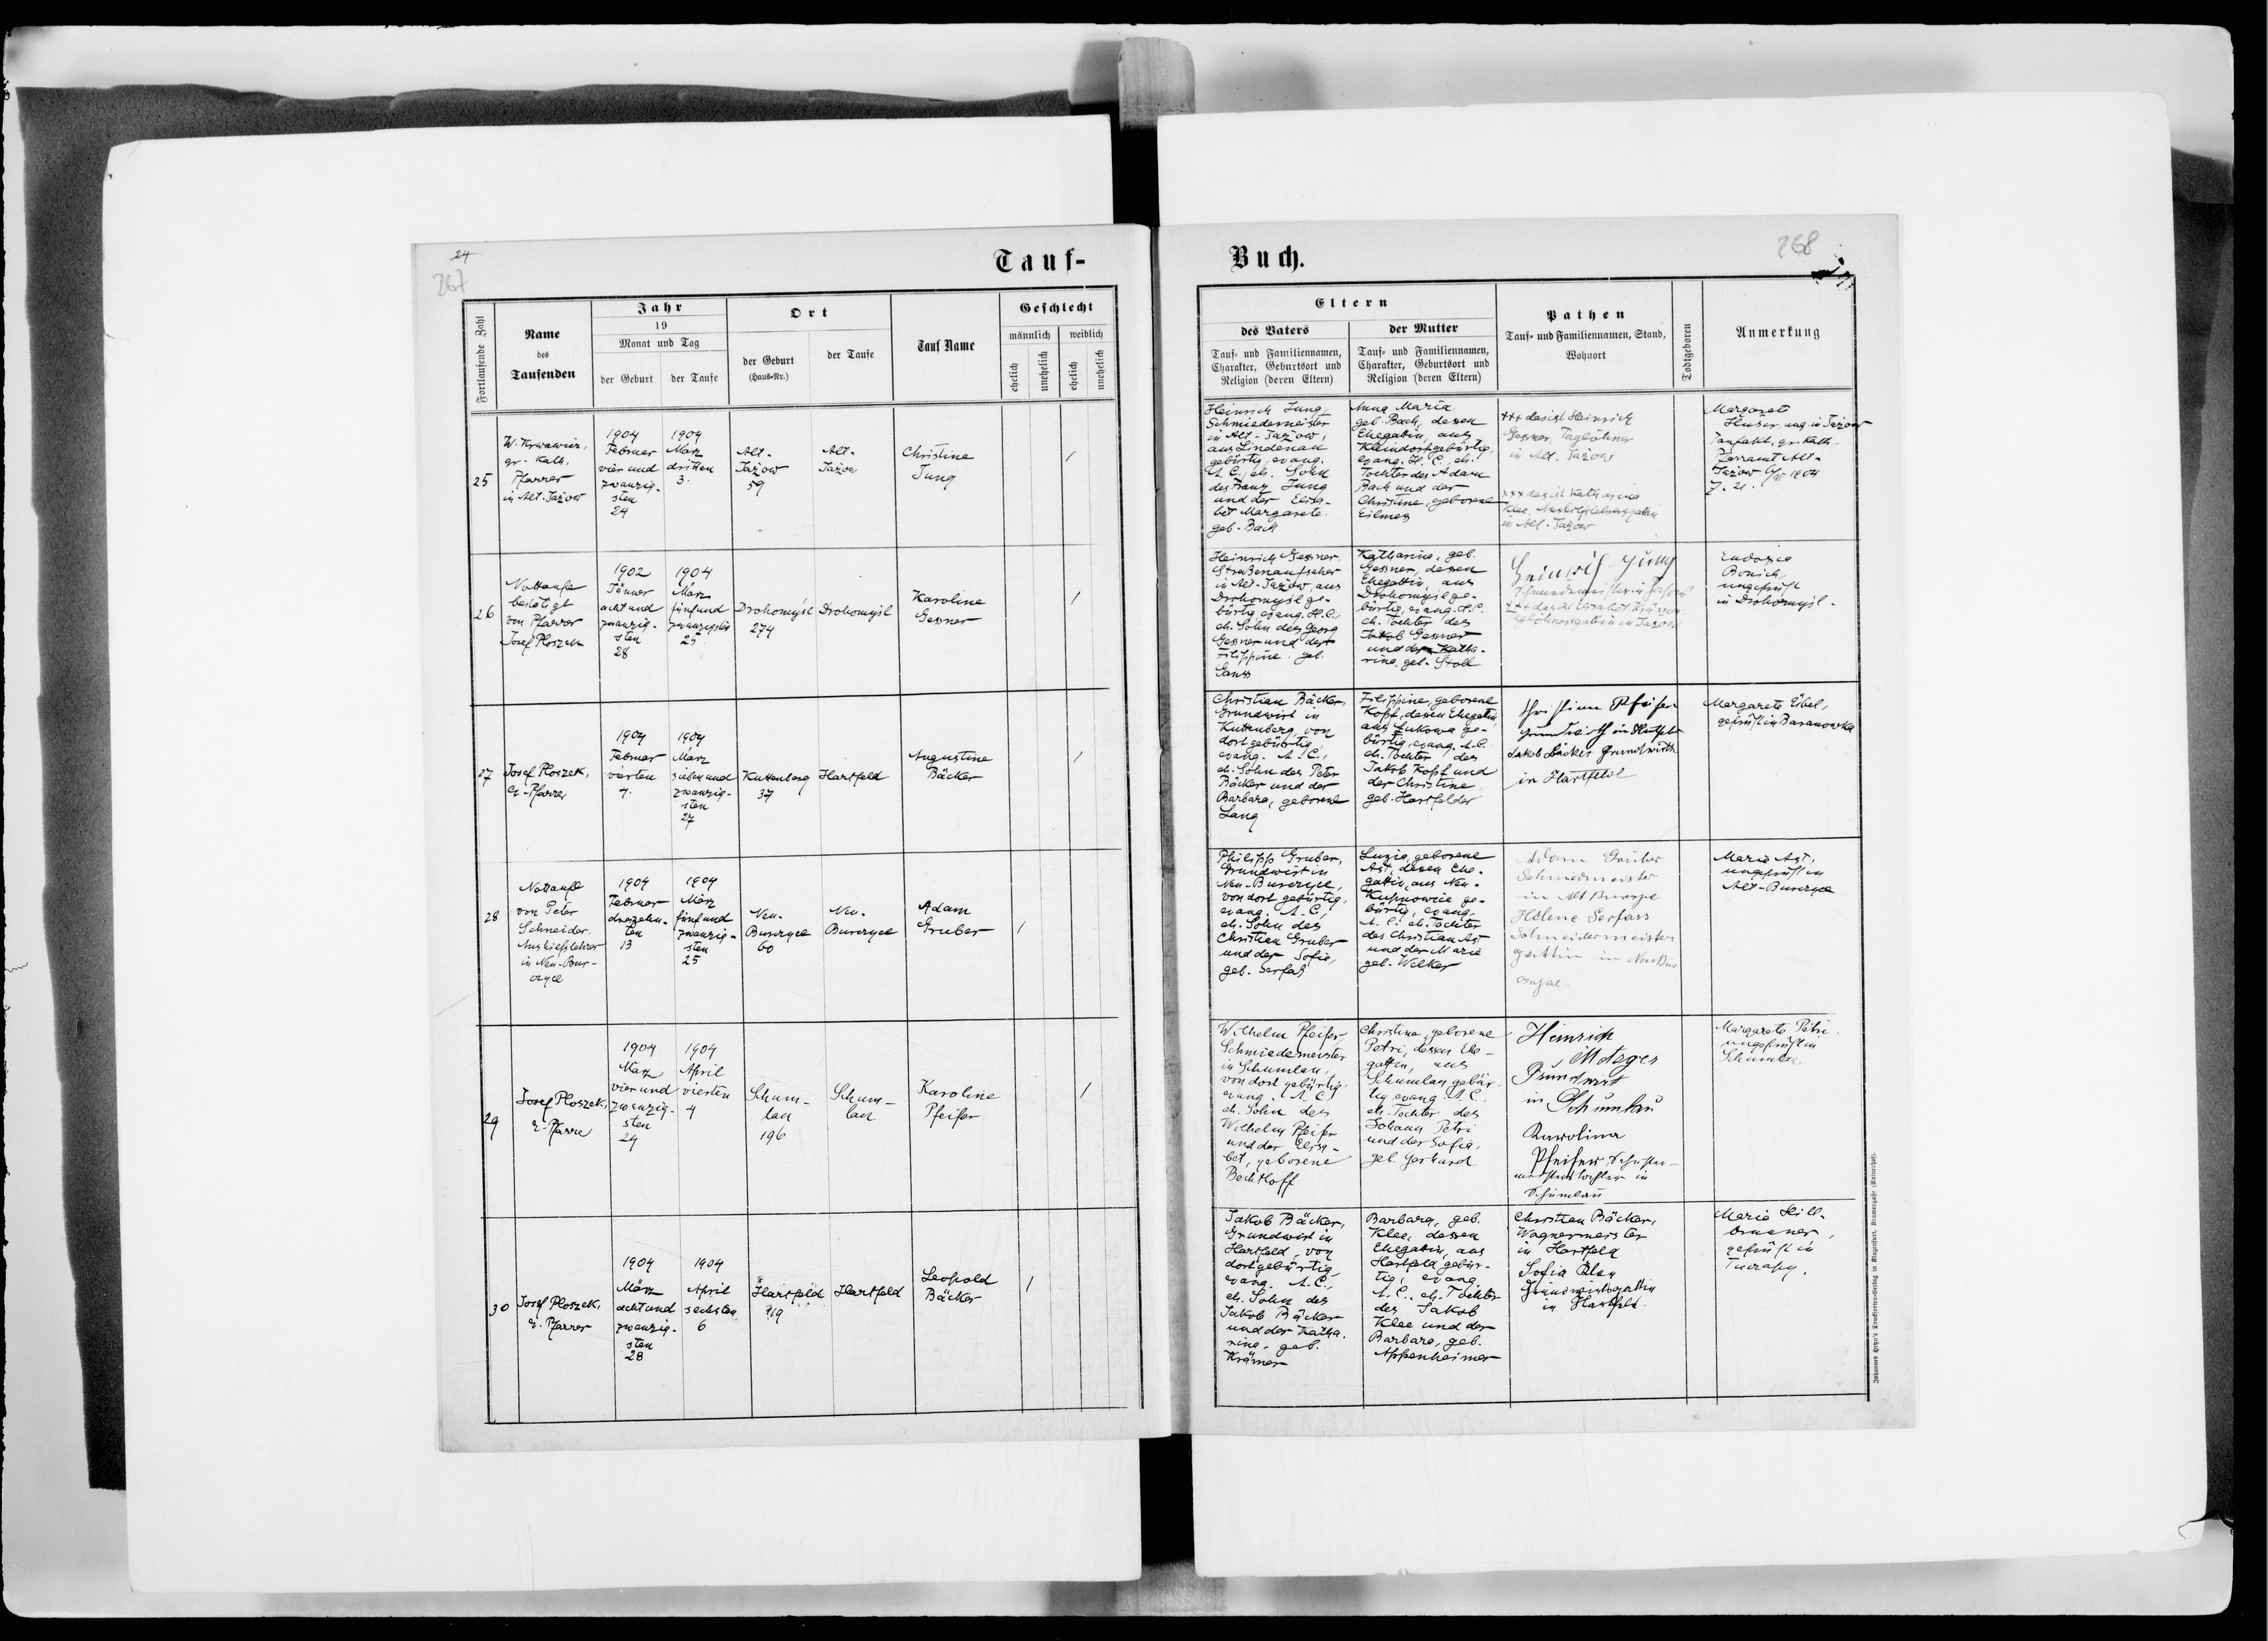 24
267
Tauf-
Fortlaufende Zahl
Name
des
Taufenden
Jahr
19
Monat und Tag
der Geburt
der Taufe
Ort
der Geburt
(Haus-Nr.)
der Taufe
Tauf Name
Geschlecht
männlich
weiblich
ehelich
unehelich
ehelich
unehelich
25
gr. kath.
Pfarrer
in Alt-Jażow
1904
Februar
vier und
zwanzig-
sten
24
1904
März
dritten
3.
Alt-
Jażow
59
Alt-
Jażow
Christine
Jung
/
26
Nottaufe
bestätigt
von Pfarrer
Josef Ploszek
1902
Jänner
acht und
zwanzig-
sten
28
1904
März
fünf und
zwanzigsten
25
Drohomyśl
274
Drohomyśl
Karoline
Gessner
/
27
Josef Ploszek,
ev-Pfarrer
1904
Februar
vierten
4.
1904
März
sieben und
zwanzig-
sten
27
Kuttenberg
37
Hartfeld
Augustine
Bäcker
/
28
Nottaufe
von Peter
Schneider,
Aushilfslehrer
in Neu-Bur-
czyce
1904
Februar
dreizehn-
ten
13
1904
März
fünf und
zwanzig-
sten
25
Neu-
Burczyce
60
Neu-
Burczyce
Adam
Gruber
/
29
Josef Ploszek,
1904
März
vier und
zwanzig-
sten
24
1904
April
vierten
4
Schum-
lau
196
Schum-
lau
Karoline
Pfeifer
/
30
Josef Ploszek,
ev. Pfarrer
1904
März
acht und
zwanzig-
sten
28
1904
April
sechsten
6
Hartfeld
Hartfeld
Leopold
Bäcker
/
Buch.
268
Eltern
des Vaters
Tauf- und Familiennamen,
Charakter, Geburtsort und
Religion (deren Eltern)
der Mutter
Tauf- und Familiennamen,
Charakter, Geburtsort und
Religion (deren Eltern)
Pathen
Tauf- und Familiennamen, Stand,
Wohnort
Todtgeboren
Anmerkung
Heinrich Jung,
Schmiedemeister
in Alt-Jażow,
aus Lindenau
gebürtig, evang.
A. C., eh. Sohn
des Franz Jung
und der Elisa-
bet Margarete
geb. Bach
Anna Maria
geb. Bach, dessen
Ehegattin, aus
Kleindorf gebürtig,
evang. H. C., eh.
Tochter des Adam
Bach und der
Christine, geborene
Eilmes
+++ das ist Heinrich
Gessner, Taglöhner
in Alt-Jażow
+++ das ist Katharina
Klee,
in Alt-Jażow
Margaret
ung. in Jażow
gr. kath.
Pfarramt Alt-
Jażow 1904
Z. 21.
Heinrich Gessner
Straßenaufseher
in Alt-Jażow, aus
Drohomyśl ge-
bürtig, evang. H.C.,
eh. Sohn des Georg
Gessner und der
Filippine geb.
Ganss
Katharina, geb.
Gessner, dessen
Ehegattin, aus
Drohomyśl ge-
bürtig, evang. H.C.
eh. Tochter des
Jakob Gessner
und der Katha-
rina, geb. Stoll
Heinrich Jung
Schmiedemeister in Jażow
Taglöhnersgattin in Jażow
Eudozia
Bonich,
ungeprüft
in Drohomyśl.
Christian Bäcker,
Grundwirt in
Kuttenberg, von
dort gebürtig,
evang. A. C.,
eh. Sohn des Peter
Bäcker und der
Barbara, geborene
Lang
Filippine, geborene
Kopf, dessen Ehegattin,
aus Łukowa ge-
bürtig, evang. A. C.
eh. Tochter des
Jakob Kopf und
der Christine
geb. Hartfelder
Christian Pfeifer
Grundwirth in Hartfeld
Jakob Bäcker Grundwirth
in Hartfeld
Margarete Eibel,
geprüft in Baranowka
Philipp Gruber,
Grundwirt in
Neu-Burczyce,
von dort gebürtig,
evang. A. C.,
eh. Sohn des
Christian Gruber
und der Sofie,
geb. Serfaß
Luzia, geborene
Ast, dessen Ehe-
gattin, aus Neu-
Kupnowice ge-
bürtig, evang.
A. C. eh. Tochter
des Christian Ast
und der Marie
geb. Welker
Adam Gruber
Schmiedmeister
in Alt Burczyce
Helene Serfass
Schneidermeisters
gattin in Neu Bur
czyce.
Marie Ast,
ungeprüft in
Alt-Burczyce
Wilhelm Pfeifer,
Schmiedemeister
in Schumlau,
von dort gebürtig,
evang. A. C.
eh. Sohn des
Wilhelm Pfeifer
und der Elisa-
bet, geborene
Bechtloff
Christine, geborene
Petri, dessen Ehe-
gattin, aus
Schumlau gebür-
tig evang. A. C.,
eh. Tochter des
Johann Petri
und der Sofie,
geb. Gerhard
Heinrich
Metzger
Grundwirt
in Schumlau
Karolina
Pfeifer, Schuster-
meisterstochter in
Schumlau
Margarete Petri
ungeprüft in
Schumlau
Jakob Bäcker,
Grundwirt in
Hartfeld, von
dort gebürtig,
evang. A. C.,
eh. Sohn des
Jakob Bäcker
und der Katha-
rina, geb.
Krämer
Barbara, geb.
Klee, dessen
Ehegattin, aus
Hartfeld gebür-
tig, evang.
A. C., eh. Tochter
des Jakob
Klee und der
Barbara, geb.
Appenheimer
Christian Bäcker,
Wagnermeister
in Hartfeld
Sofia Klee
Grundwirtsgattin
in Hartfeld.
Maria Hill-
geprüft in
Johannes Heyn's Drucksorten-Verlag in Klagenfurt, Kramergasse